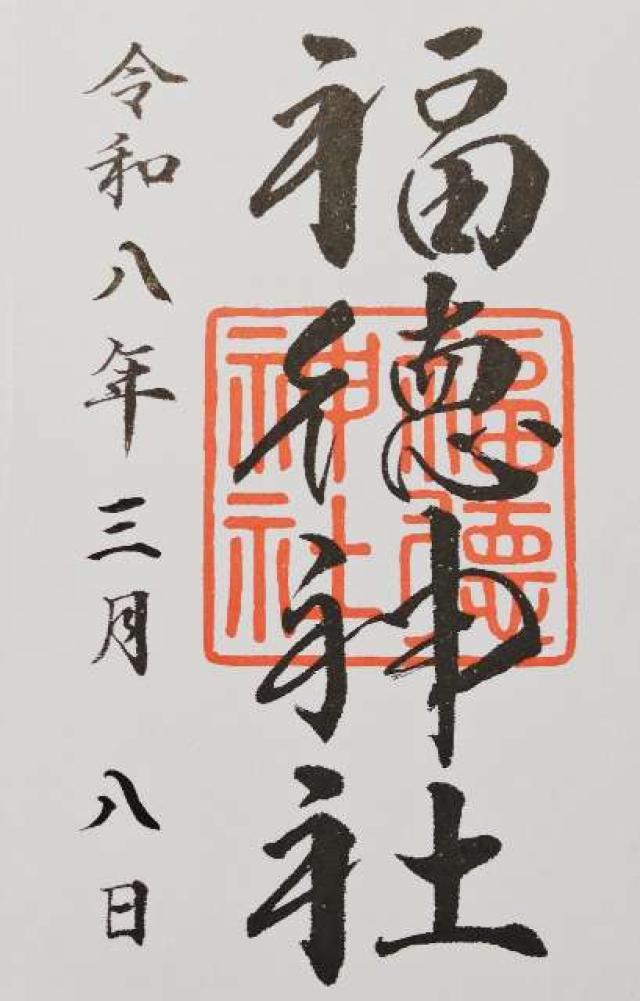 福徳神社
福徳神社
令和八年三月八日